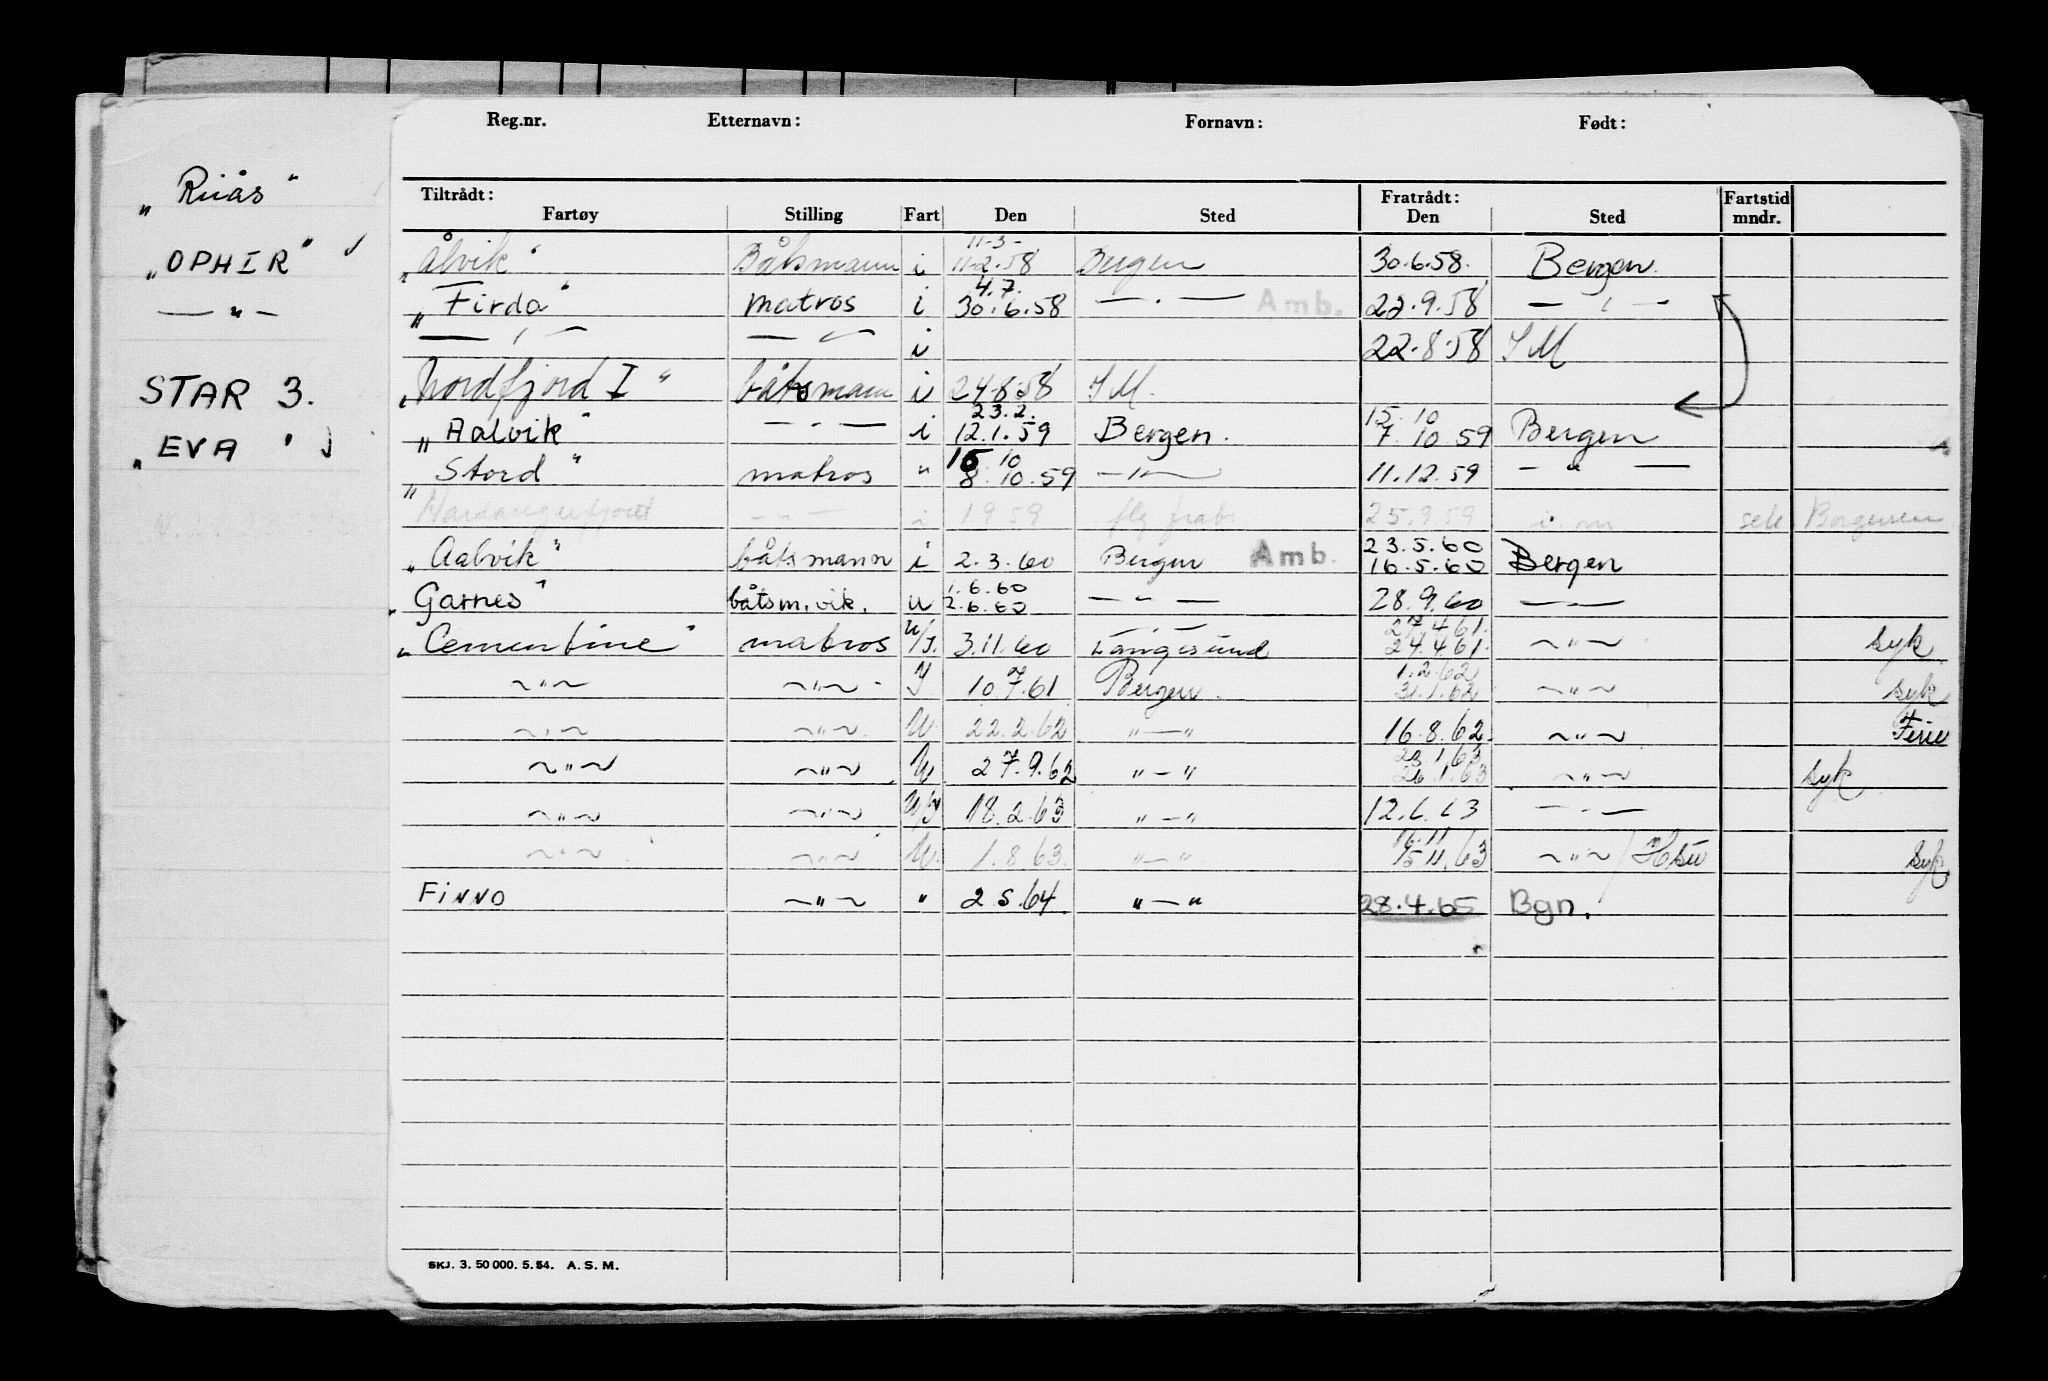 „Riiås"
„OPHIR"
— " —
STAR 3.
„EVA"
Reg.nr. Etternavn: Fornavn: Født:
Tiltrådt: Fratrådt: Fartstid
Fartøy Stilling Fart Den Sted Den Sted mndr.
11-3-
„Ålvik" Båtsmann i 11-2.58 Bergen 30.6.58. Bergen.
4.7.
„Firda" matros i 30.6.58 — . — Amb. 22.9.58 — , —
— , — — " — i 22.8.58 SM
„Nordfjord I" båtsmann i 24.8.58 SM.
23.2. 15. 10
„Aalvik" — . — i 12.1.59 Bergen. 7. 10 59 Bergen
15 10
„Stord" matros " 8. 10. 59 — " — 11.12.59 — " —
Hardangerfjord — " — i 1959 25.9.59 i. m
23.5.60
„Aalvik" båtsmann i 2.3.60 Bergen Amb. 16.5.60 Bergen
1.6.60
„Garnes" båtsm.vik. u 2.6.60 — " — 28.9.60 — " —
27.4.61.
„Cementine" matros u/I. 3.11.60 Langesund 24.4.61. ~ " ~ syk
1.2.62
~ " ~ ~ " ~ I 10.7.61 Bergen. 31.1.62 ~ " ~ syk
~ " ~ ~ " ~ U 22.2.62 " — " 16.8.62. ~ " ~ Ferie
~ " ~ ~ " ~ U 27.9.62 " — " 26.1.63 ~ " ~ syk
~ " ~ ~ " ~ U/I 18.2.63 " — " 12.6.63 — . —
16.11
~ " ~ ~ " ~ U. 1.8.63. " — " 15.11.63 ~ " ~ syk
FiNNO ~ " ~ " 2.5.64. " — " 28.4.65 Bgn.
SKJ. 3. 50 000. 5. 54. A. S. M.